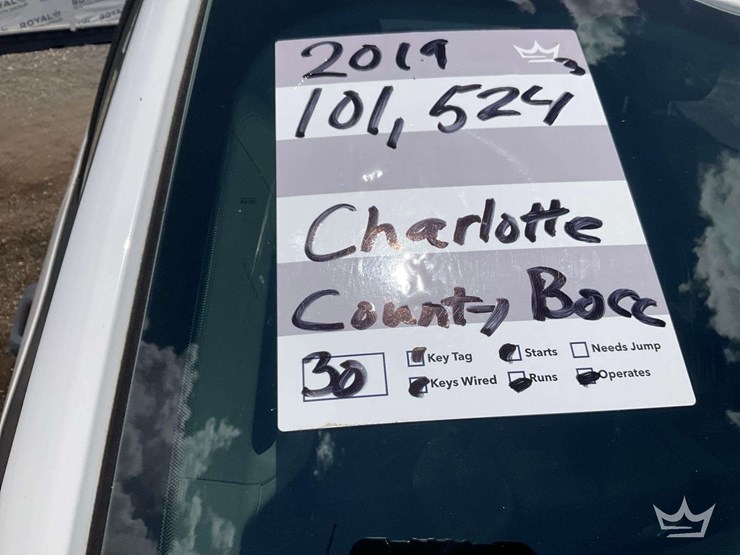 ROYAL
2019
3
101,524
Charlotte
County Bocc
30
Key Tag Starts Needs Jump
Keys Wired Runs Operates